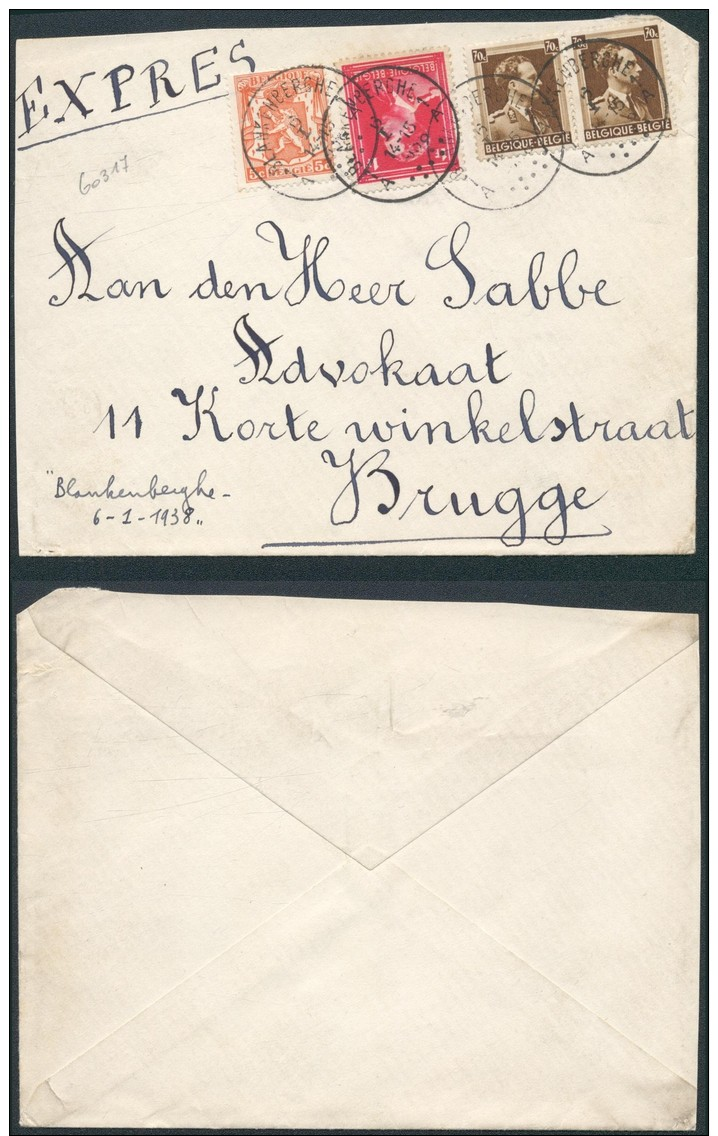 EXPRES
BELGIQUE
5c BELGIË 5c
BELGIQUE-BELGIË
70c 70c
BELGIQUE-BELGIË
70c
BELGIQUE-BELGIË
BLANKENBERGHE
A A
60317
Aan den Heer Sabbe
Advokaat
11 Korte winkelstraat
Brugge
"Blankenberghe -
6-1-1938"